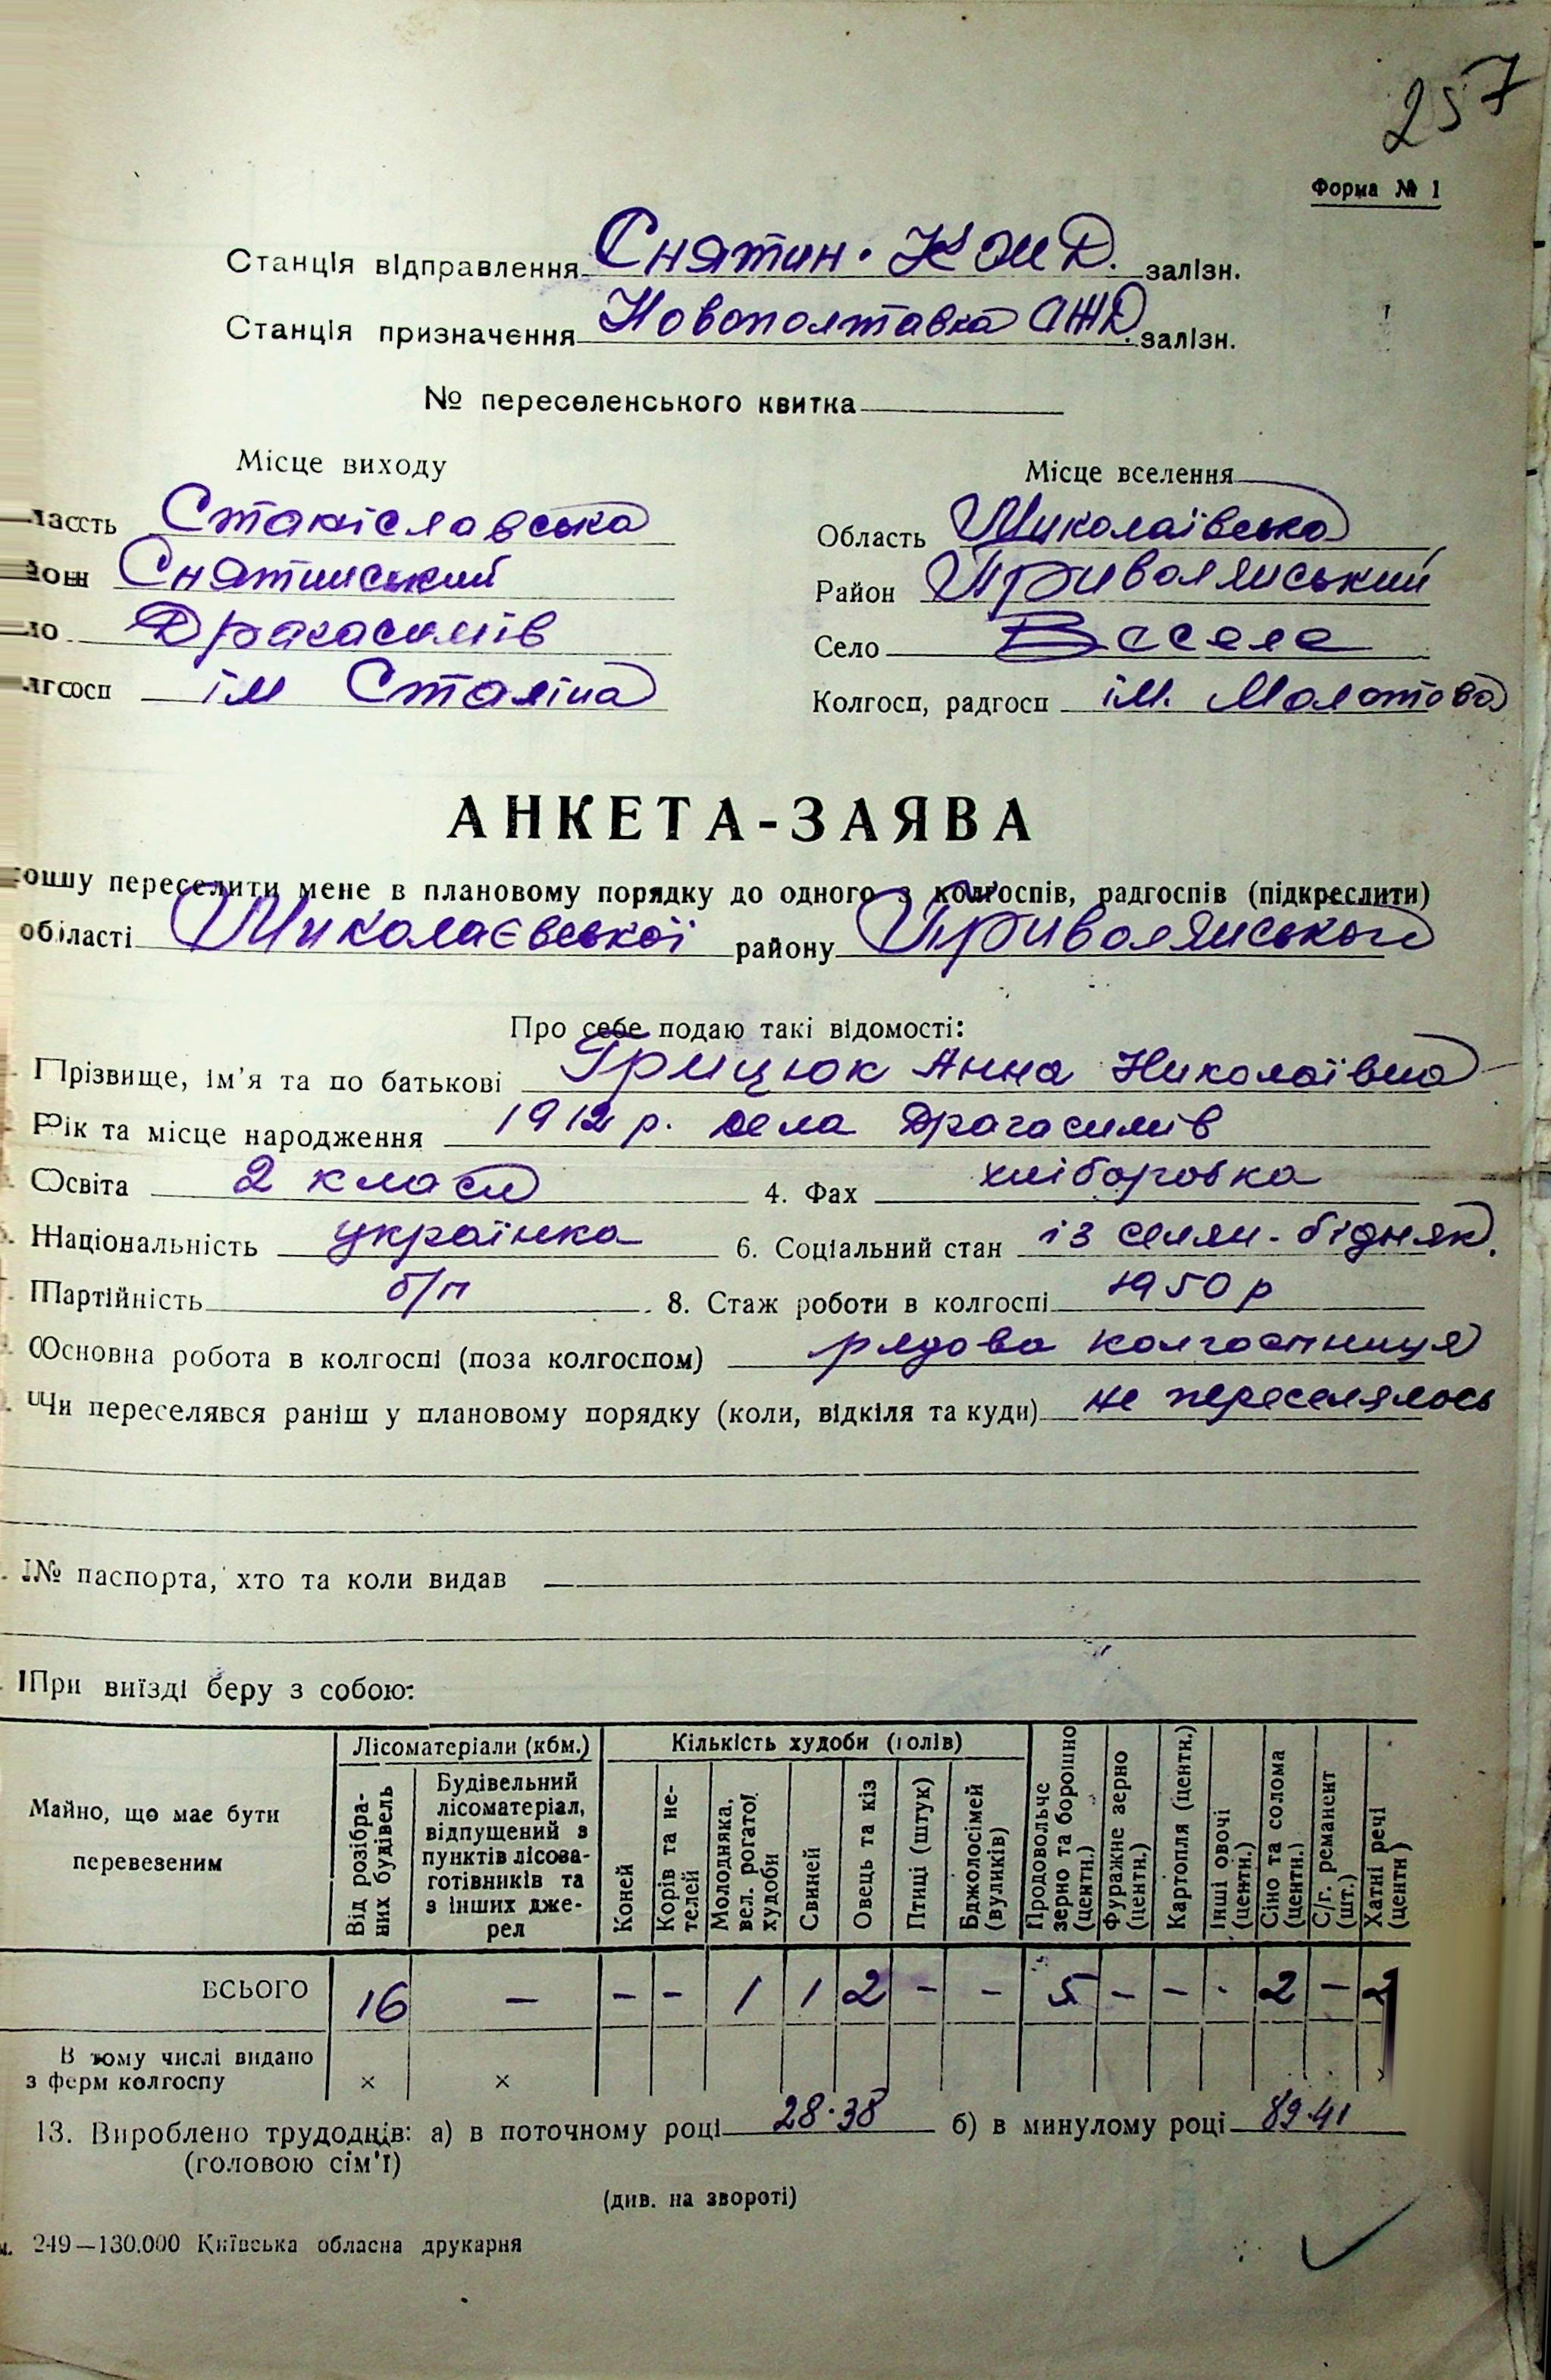 257
Форма № 1
Станція відправлення Снятин. К ЖД. залізн.
Станція призначення Новополтавка ОЖД залізн.
№ переселенського квитка
Місце виходу Місце вселення
ласть Станіславська Область Миколаївська
йон Снятинський Район Привольянський
ло Драгасимів Село Веселе
лгосп ім Сталіна Колгосп, радгосп ім. Молотова
АНКЕТА-ЗАЯВА
ошу переселити мене в плановому порядку до одного з колгоспів, радгоспів (підкреслити)
області Миколаєвської району Привольянського
Про себе подаю такі відомості:
Прізвище, ім'я та по батькові Грицюк Анна Николаївна
Рік та місце народження 1912 р. села Драгасимів
Освіта 2 класи 4. Фах хліборобка
Національність українка 6. Соціальний стан із селян-бідняк.
Партійність б/п 8. Стаж роботи в колгоспі 1950 р
Основна робота в колгоспі (поза колгоспом) рядова колгоспниця
Чи переселявся раніш у плановому порядку (коли, відкіля та куди) не переселялось
№ паспорта, хто та коли видав
При виїзді беру з собою:
Майно, що має бути перевезеним
Лісоматеріали (кбм.) Кількість худоби (голів)
Від розібраних будівель
Будівельний лісоматеріал, відпущений з пунктів лісозаготівників та з інших джерел
Коней
Корів та нетелей
Молодняка, вел. рогатої худоби
Свиней
Овець та кіз
Птиці (штук)
Бджолосімей (вуликів)
Продовольче зерно та борошно (центн.)
Фуражне зерно (центн.)
Картопля (центн.)
Інші овочі (центн.)
Сіно та солома (центн.)
С/г. реманент (шт.)
Хатні речі (центн)
ВСЬОГО 16 — - - 1 1 2 - - 5 - - - 2 - 2
В тому числі видано
з ферм колгоспу × ×
13. Вироблено трудоднів: а) в поточному році 28.38 б) в минулому році 89.41
(головою сім'ї)
(див. на звороті)
249—130.000 Київська обласна друкарня